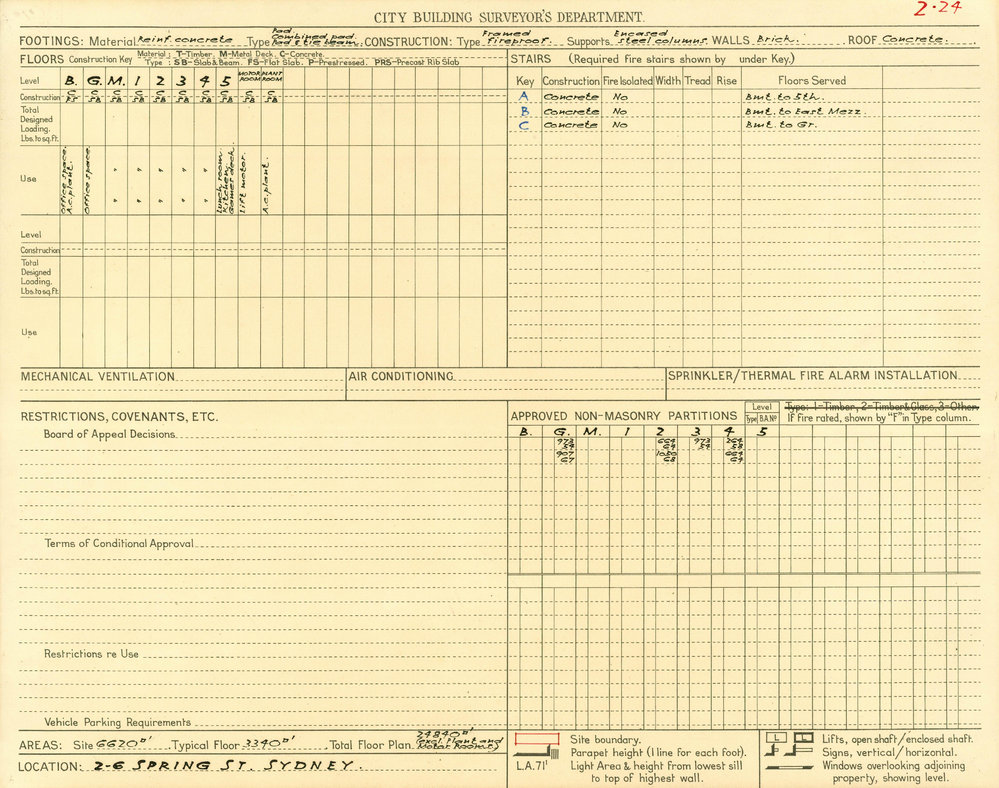 2·24
CITY BUILDING SURVEYOR'S DEPARTMENT.
FOOTINGS: Material Reinf. concrete Type Pad. Combined pad. Pad & tie beam. CONSTRUCTION: Type Framed Fireproof. Supports Encased steel columns. WALLS Brick. ROOF Concrete.
FLOORS Construction Key Material: T-Timber. M-Metal Deck. C-Concrete.
Type: SB-Slab & Beam. FS-Flat Slab. P-Prestressed. PRS-Precast Rib Slab
STAIRS (Required fire stairs shown by under Key.)
Level B. G. M. 1 2 3 4 5 MOTOR ROOM PLANT ROOM
Construction C FS C SB C SB C SB C SB C SB C SB C SB C SB C SB
Total Designed Loading. Lbs. to sq. ft.
Use Office space. A.c. plant. Office space. " " " " " " " " " " Lunch room. Kitchen. Games deck. Lift motor. A.c. plant.
Level
Construction
Total Designed Loading. Lbs. to sq. ft.
Use
Key Construction Fire Isolated Width Tread Rise Floors Served
A Concrete No Bmt. to 5th.
B Concrete No Bmt. to East Mezz.
C Concrete No Bmt. to Gr.
MECHANICAL VENTILATION
AIR CONDITIONING
SPRINKLER/THERMAL FIRE ALARM INSTALLATION
RESTRICTIONS, COVENANTS, ETC.
Board of Appeal Decisions
Terms of Conditional Approval
Restrictions re Use
Vehicle Parking Requirements
APPROVED NON-MASONRY PARTITIONS Level Type B.A.Nº Type: 1=Timber, 2=Timber & Glass, 3=Other.
If fire rated, shown by "F" in Type column.
B. G. M. 1 2 3 4 5
973 54 664 64 973 54 264 58
907 67 1050 68 664 64
AREAS: Site 6620 □' Typical Floor 3340 □' Total Floor Plan. 24840 □' (excl. Plant and Motor Rooms)
LOCATION: 2-6 SPRING ST. SYDNEY.
Site boundary.
Parapet height (1 line for each foot).
L.A.71' Light Area & height from lowest sill to top of highest wall.
L L Lifts, open shaft/enclosed shaft.
Signs, vertical/horizontal.
Windows overlooking adjoining property, showing level.